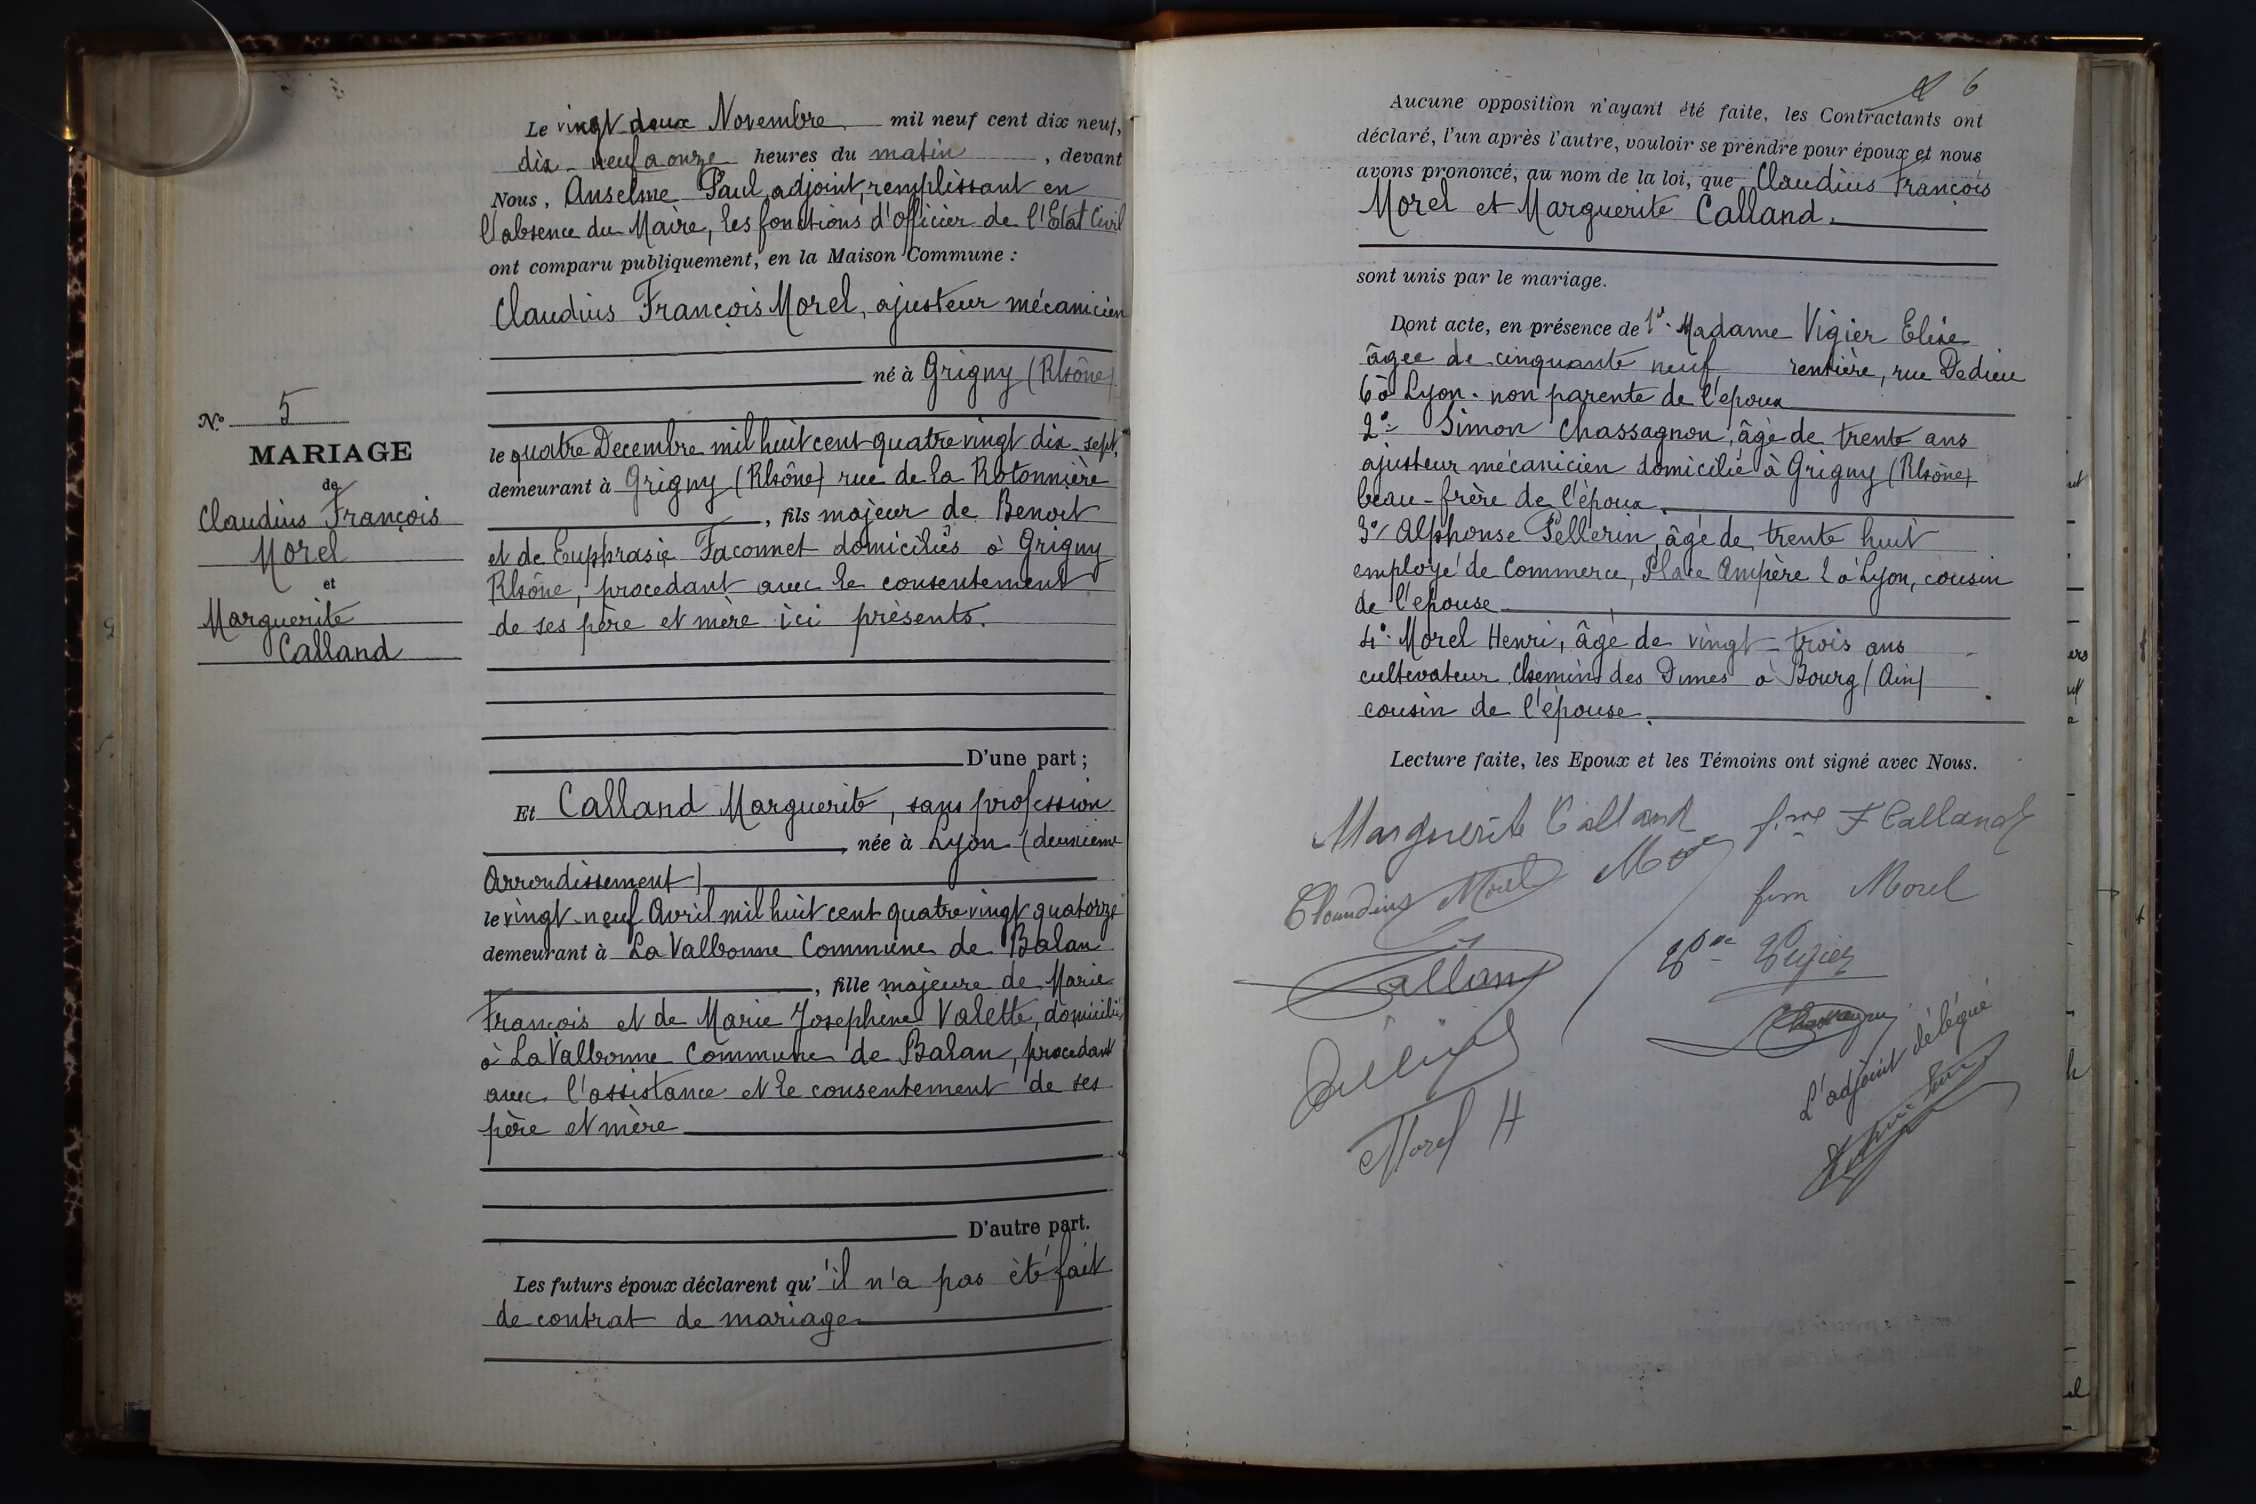 N.º 5
MARIAGE
de
Claudius François
Morel
et
Marguerite
Calland
Le vingt deux Novembre mil neuf cent dix neuf,
dix neuf a onze heures du matin, devant
Nous, Anselme Paul, adjoint, remplissant en
l'absence du Maire, les fonctions d'Officier de l'Etat Civil
ont comparu publiquement, en la Maison Commune :
Claudius François Morel, ajusteur mécanicien
né à Grigny (Rhône)
le quatre Decembre mil huit cent quatre vingt dix-sept,
demeurant à Grigny (Rhône) rue de la Rotonnière
, fils majeur de Benoit
et de Euphrasie Faconnet domiciliés à Grigny
Rhône, procedant avec le consentement
de ses père et mère ici présents.
D'une part ;
Et Calland Marguerite, sans profession
, née à Lyon (deuxième
Arrondissement)
le vingt-neuf Avril mil huit cent quatre vingt quatorze
demeurant à La Valbonne Commune de Balan
, fille majeure de Marie
François et de Marie Josephine Valette, domiciliés
à La Valbonne Commune de Balan, procedant
avec l'assistance et le consentement de ses
père et mère
D'autre part.
Les futurs époux déclarent qu'il n'a pas été fait
de contrat de mariage
6
Aucune opposition n'ayant été faite, les Contractants ont
déclaré, l'un après l'autre, vouloir se prendre pour époux et nous
avons prononcé, au nom de la loi, que Claudius François
Morel et Marguerite Calland.
sont unis par le mariage.
Dont acte, en présence de 1º. Madame Vigier Elise
âgée de cinquante neuf rentière, rue Dedieu
6 à Lyon. non parente de l'époux
2º Simon Chassagnon, âgé de trente ans
ajusteur mécanicien domicilié à Grigny (Rhône)
beau-frère de l'époux.
3º Alphonse Pellerin, âgé de trente huit
employé de Commerce, Place Ampère 2 à Lyon, cousin
de l'épouse
4º. Morel Henri, âgé de vingt-trois ans
cultivateur Chemin des Dimes à Bourg (Ain)
cousin de l'épouse.
Lecture faite, les Epoux et les Témoins ont signé avec Nous.
Marguerite Calland
f.me F Calland
Claudius Morel
fem Morel
Calland
Vve Vigier
L'adjoint délégué
Morel H